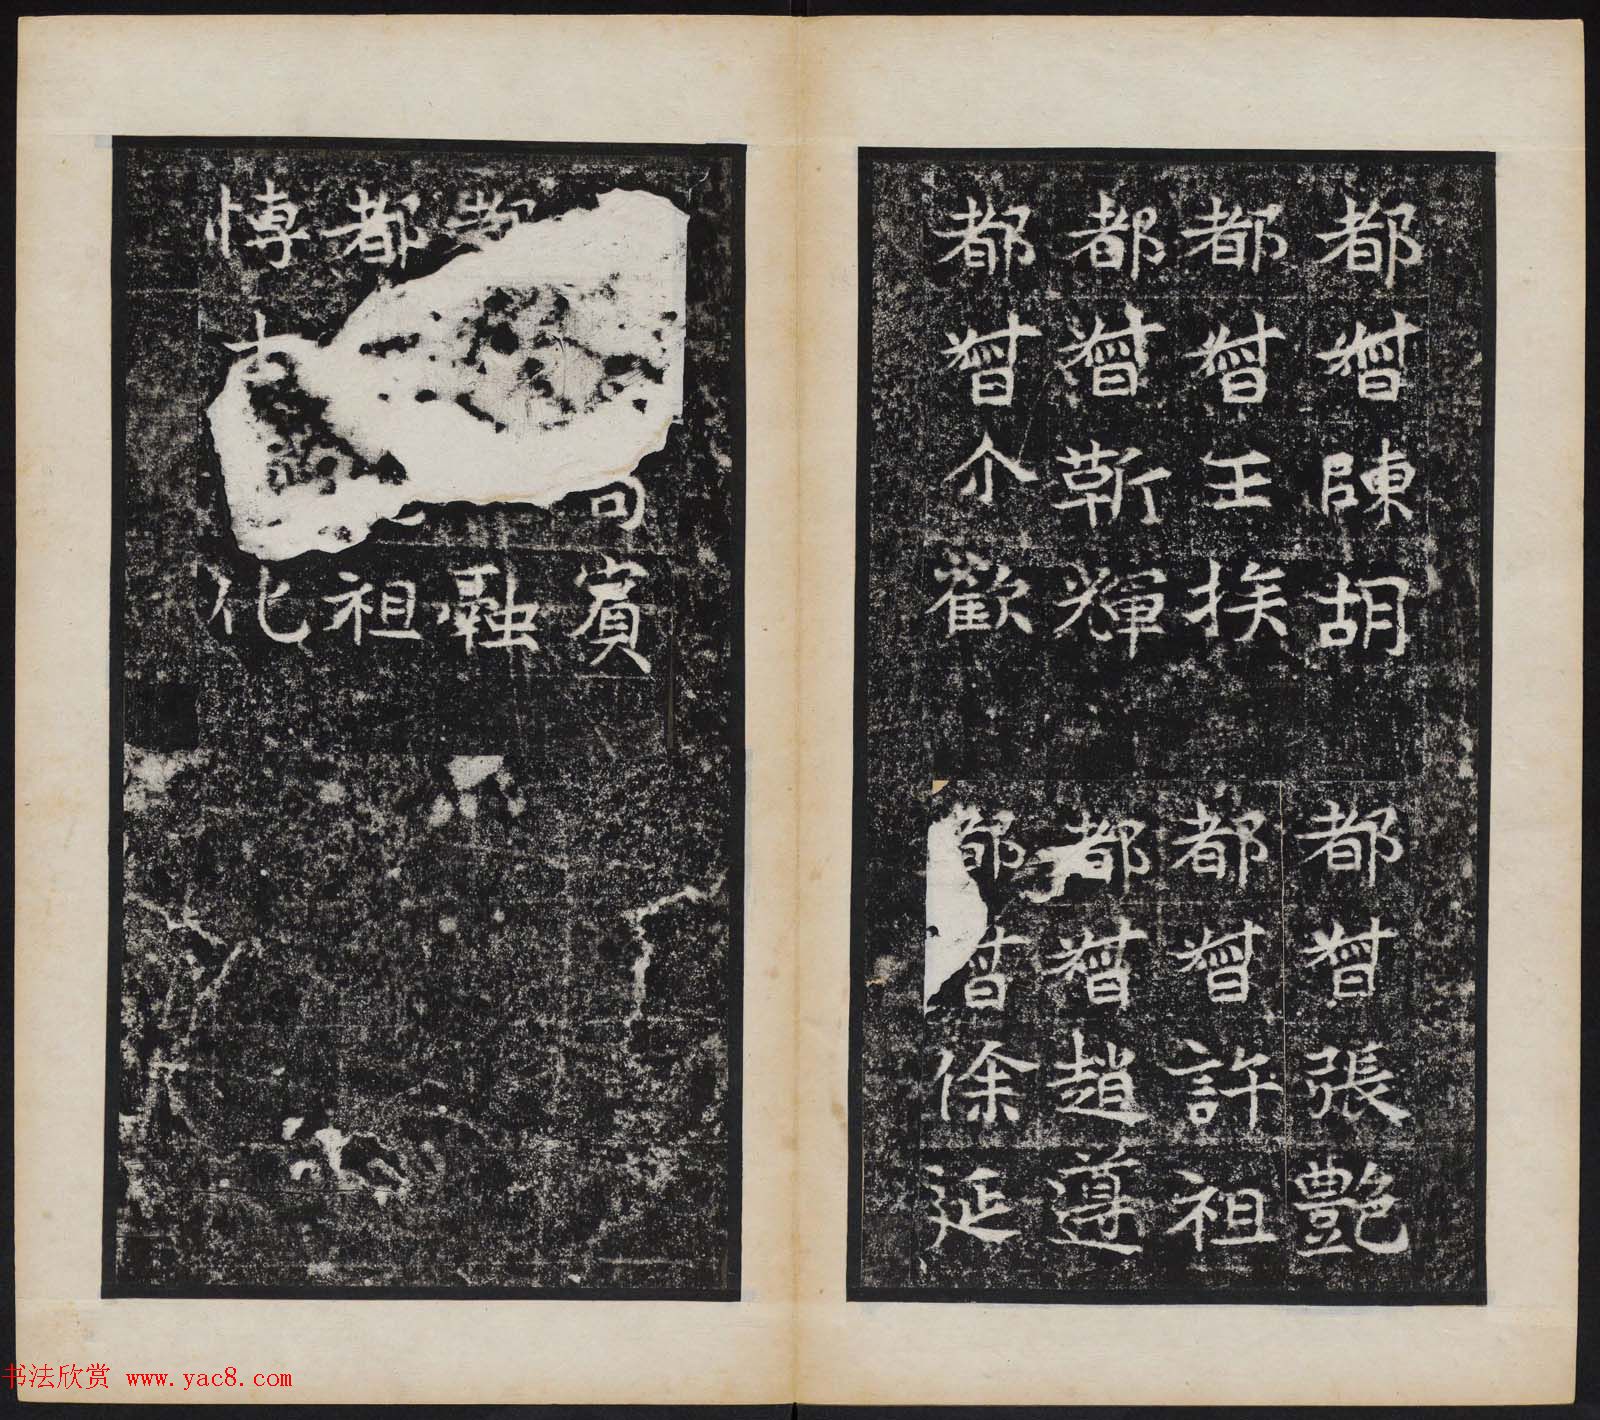 都督陳胡
都督王挨
都督靳輝
都督尒歡
都督張艶
都督許祖
都督趙遵
都督徐延
司賓
都融
都祖
博士化
书法欣赏 www.yac8.com